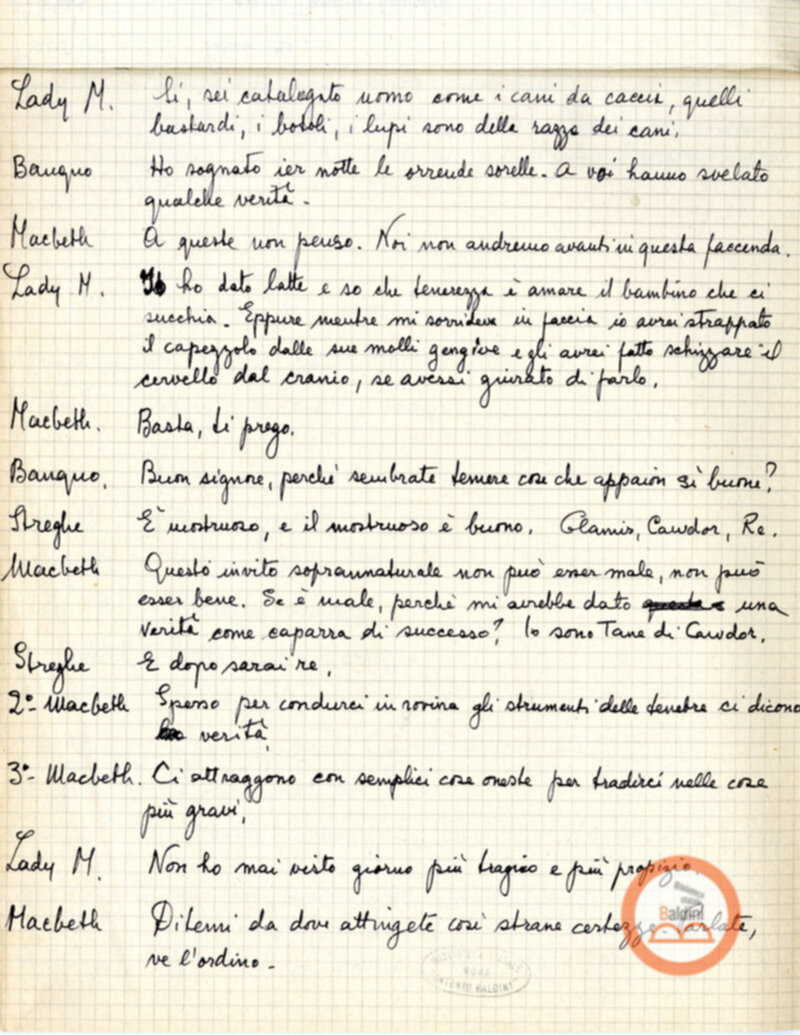 Lady M. Sì, sei catalogato uomo come i cani da caccia, quelli
bastardi, i botoli, i lupi sono della razza dei cani.
Banquo Ho sognato ier notte le orrende sorelle. A voi hanno svelato
qualche verità.
Macbeth A queste non penso. Noi non andremo avanti in questa faccenda.
Lady M. Io ho dato latte e so che tenerezza è amare il bambino che ci
succhia. Eppure mentre mi sorrideva in faccia io avrei strappato
il capezzolo dalle sue molli gengive e gli avrei fatto schizzare il
cervello dal cranio, se avessi giurato di farlo.
Macbeth. Basta, ti prego.
Banquo. Buon signore, perché sembrate temere cose che appaion sì buone?
Streghe È mostruoso, e il mostruoso è buono. Glamis, Cawdor, Re.
Macbeth Questo invito soprannaturale non può esser male, non può
esser bene. Se è male, perché mi avrebbe dato una
verità come caparra di successo? Io sono Tane di Cawdor.
Streghe E dopo sarai re.
2°- Macbeth Spesso per condurci in rovina gli strumenti delle tenebre ci dicono
verità
3°- Macbeth. Ci attraggono con semplici cose oneste per tradirci nelle cose
più gravi.
Lady M. Non ho mai visto giorno più tragico e più propizio.
Macbeth Ditemi da dove attingete così strane certezze. Parlate,
ve l'ordino.
Baldini
ROMA
ANTONIO BALDINI